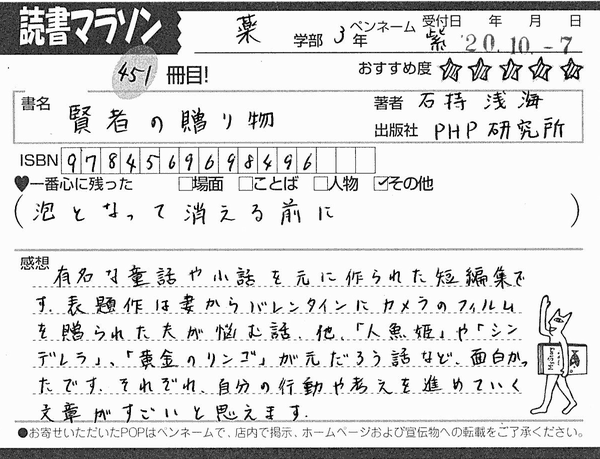 読書マラソン
薬 学部 3年 ペンネーム 紫 受付日 年 月 日
'20.10.-7
451冊目! おすすめ度 ☆☆☆☆☆
書名 賢者の贈り物 著者 石持浅海
出版社 PHP研究所
ISBN 9784569698496
♥一番心に残った □場面 □ことば □人物 ☑その他
(泡となって消える前に)
感想
有名な童話や小話を元に作られた短編集で
す。表題作は妻からバレンタインにカメラのフィルム
を贈られた夫が悩む話。他、「人魚姫」や「シン
デレラ」、「黄金のリンゴ」が元だろう話など、面白かっ
たです。それぞれ、自分の行動や考えを進めていく
文章がすごいと思えます。
●お寄せいただいたPOPはペンネームで、店内で掲示、ホームページおよび宣伝物への転載をご了承ください。